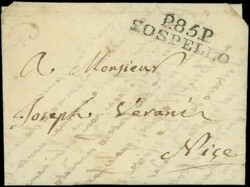 P.85.P
SOSPELLO
A Monsieur
Joseph Verani
Nice